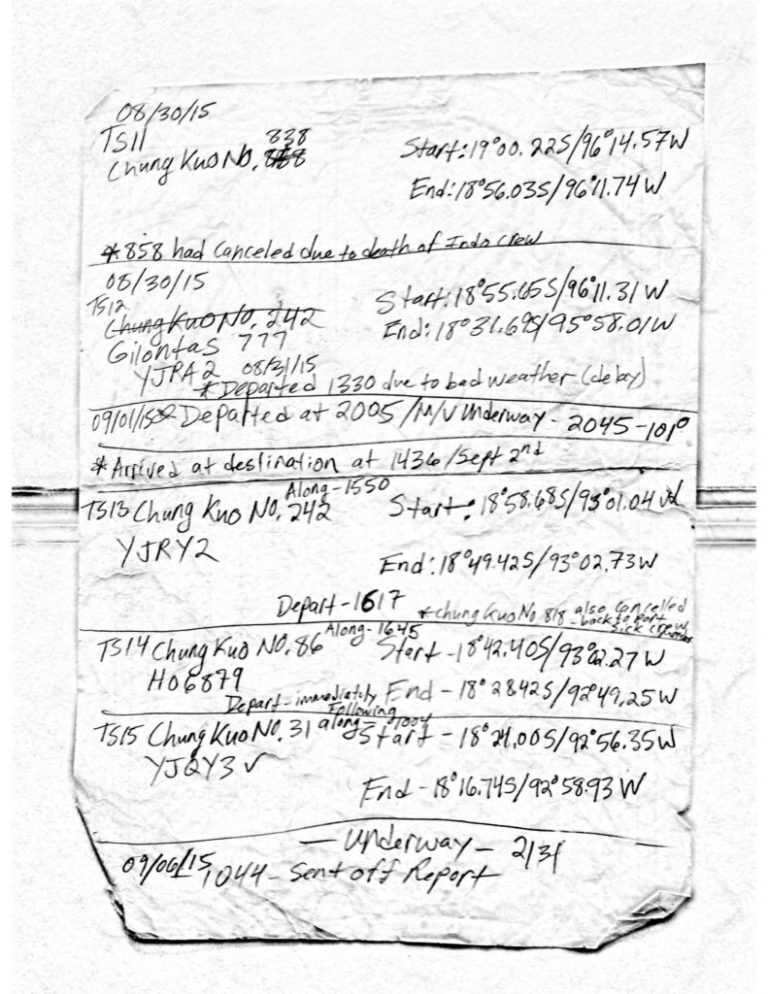 08/30/15
TS11 838
Chung Kuo No. 858 Start: 19°00.22S/96°14.57W
End: 18°56.03S/96°11.74W
* 858 had canceled due to death of Indo crew
08/30/15
TS12 Start: 18°55.65S/96°11.31W
Chung Kuo No. 242 End: 18°31.69S/95°58.01W
Gilontas 777
YJPA2 08/31/15
* Departed 1330 due to bad weather (delay)
09/01/15 Departed at 2005/M/V Underway - 2045-101°
* Arrived at destination at 1436/Sept 2nd
Along-1550
TS13 Chung Kuo No. 242 Start: 18°58.68S/93°01.04W
YJRY2
End: 18°49.42S/93°02.73W
Depart-1617 *Chung Kuo No. 818 also cancelled
- back to port
sick crew
Along-1645
TS14 Chung Kuo No. 86 Start - 18°42.40S/93°02.27W
HO6879
Depart - immediately Following End - 18°28.42S/92°49.25W
TS15 Chung Kuo No. 31 along- Start - 18°21.00S/92°56.35W
YJQY3 ✓
End - 18°16.74S/92°58.93W
— Underway — 2131
09/06/15 1044 - Sent off Report